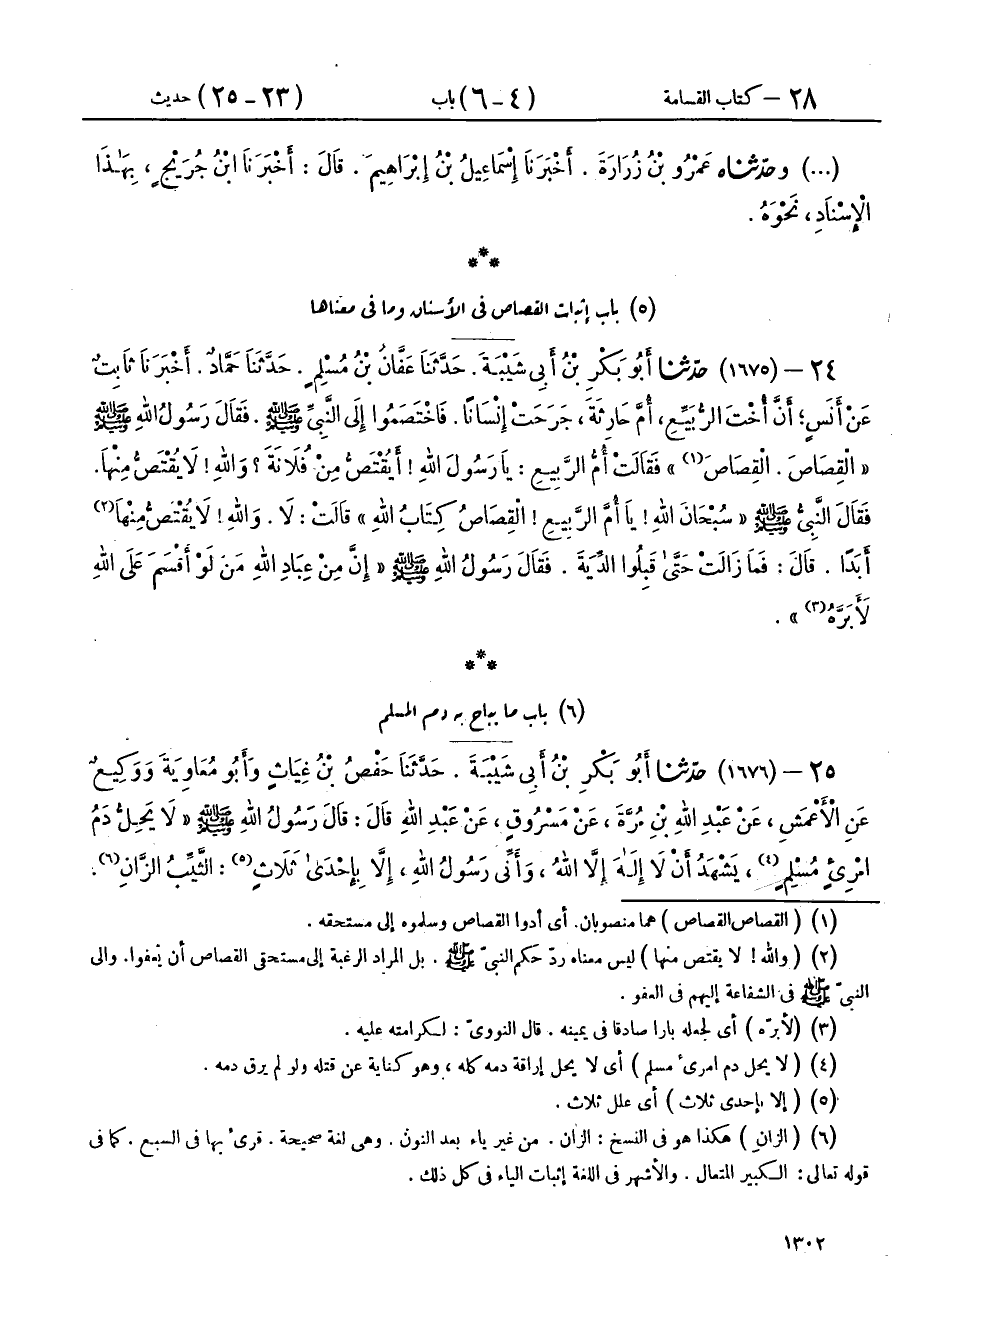 ٢٨ – كتاب القسامة (٤ – ٦) باب (٢٣ – ٢٥) حديث
(...) وحدّثناه عَمْرُو بْنُ زُرَارَةَ . أَخْبَرَنَا إِسْمَاعِيلُ بْنُ إِبْرَاهِيمَ . قَالَ : أَخْبَرَنَا ابْنُ جُرَيْجٍ ، بِهَـٰذَا
الْإِسْنَادِ ، نَحْوَهُ .
***
(٥) باب إثبات القصاص فى الأسنان وما فى معناها
٢٤ – (١٦٧٥) حدّثنا أَبُو بَكْرِ بْنُ أَبِى شَيْبَةَ . حَدَّثَنَا عَفَّانُ بْنُ مُسْلِمٍ . حَدَّثَنَا حَمَّادٌ . أَخْبَرَنَا ثَابِتٌ
عَنْ أَنَسٍ؛ أَنَّ أُخْتَ الرُّبَيِّعِ، أُمَّ حَارِثَةَ ، جَرَحَتْ إِنْسَانًا. فَاخْتَصَمُوا إِلَى النَّبِىِّ ﷺ . فَقَالَ رَسُولُ اللهِ ﷺ
« الْقِصَاصَ . الْقِصَاصَ(١) » فَقَالَتْ أُمُّ الرَّبِيعِ : يَا رَسُولَ اللهِ ! أَيُقْتَصُّ مِنْ فُلَانَةَ ؟ وَاللهِ ! لَا يُقْتَصُّ مِنْهَا.
فَقَالَ النَّبِىُّ ﷺ « سُبْحَانَ اللهِ ! يَا أُمَّ الرَّبِيعِ ! الْقِصَاصُ كِتَابُ اللهِ » قَالَتْ : لَا . وَاللهِ ! لَا يُقْتَصُّ مِنْهَا(٢)
أَبَدًا . قَالَ : فَمَا زَالَتْ حَتَّىٰ قَبِلُوا الدِّيَةَ . فَقَالَ رَسُولُ اللهِ ﷺ « إِنَّ مِنْ عِبَادِ اللهِ مَنْ لَوْ أَقْسَمَ عَلَى اللهِ
لَأَبَرَّهُ(٣) » .
***
(٦) باب ما يباح به دم المسلم
٢٥ – (١٦٧٦) حدّثنا أَبُو بَكْرِ بْنُ أَبِى شَيْبَةَ . حَدَّثَنَا حَفْصُ بْنُ غِيَاثٍ وَأَبُو مُعَاوِيَةَ وَوَكِيعٌ
عَنِ الْأَعْمَشِ ، عَنْ عَبْدِ اللهِ بْنِ مُرَّةَ ، عَنْ مَسْرُوقٍ ، عَنْ عَبْدِ اللهِ قَالَ : قَالَ رَسُولُ اللهِ ﷺ « لَا يَحِلُّ دَمُ
امْرِئٍ مُسْلِمٍ(٤) ، يَشْهَدُ أَنْ لَا إِلَـٰهَ إِلَّا اللهُ ، وَأَنِّى رَسُولُ اللهِ ، إِلَّا بِإِحْدَىٰ ثَلَاثٍ(٥) : الثَّيِّبُ الزَّانِ(٦).
(١) ( القصاص القصاص ) هما منصوبان. أى أدوا القصاص وسلموه إلى مستحقه .
(٢) ( والله ! لا يقتص منها ) ليس معناه ردّ حكم النبىّ ﷺ . بل المراد الرغبة إلى مستحقى القصاص أن يعفوا. والى
النبىّ ﷺ فى الشفاعة إليهم فى العفو .
(٣) (لأبرّه ) أى لجعله بارا صادقا فى يمينه . قال النووىّ : لكرامته عليه .
(٤) ( لا يحل دم امرئ مسلم ) أى لا يحل إراقة دمه كله ، وهو كناية عن قتله ولو لم يرق دمه .
(٥) ( إلا بإحدى ثلاث ) أى علل ثلاث .
(٦) ( الزانِ ) هكذا هو فى النسخ : الزان . من غير ياء بعد النون . وهى لغة صحيحة . قرئ بها فى السبع . كما فى
قوله تعالى : الكبير المتعال . والأشهر فى اللغة إثبات الياء فى كل ذلك .
١٣٠٢